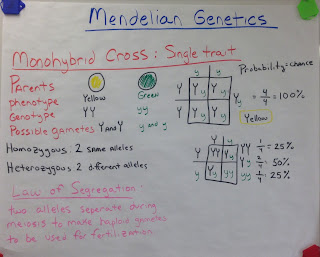 Mendelian Genetics
Monohybrid Cross: Single trait
Probability=chance
Parents
phenotype Yellow Green
Genotype YY yy
Possible gametes Y and Y y and y
y y
Y Yy Yy
Y Yy Yy
Yy = 4/4 = 100%
Yellow
Homozygous: 2 same alleles
Heterozygous: 2 different alleles
Y y
Y YY Yy
y Yy yy
YY 1/4 = 25%
Yy 2/4 = 50%
yy 1/4 = 25%
Law of Segregation:
two alleles seperate during
meiosis to make haploid gametes
to be used for fertilization